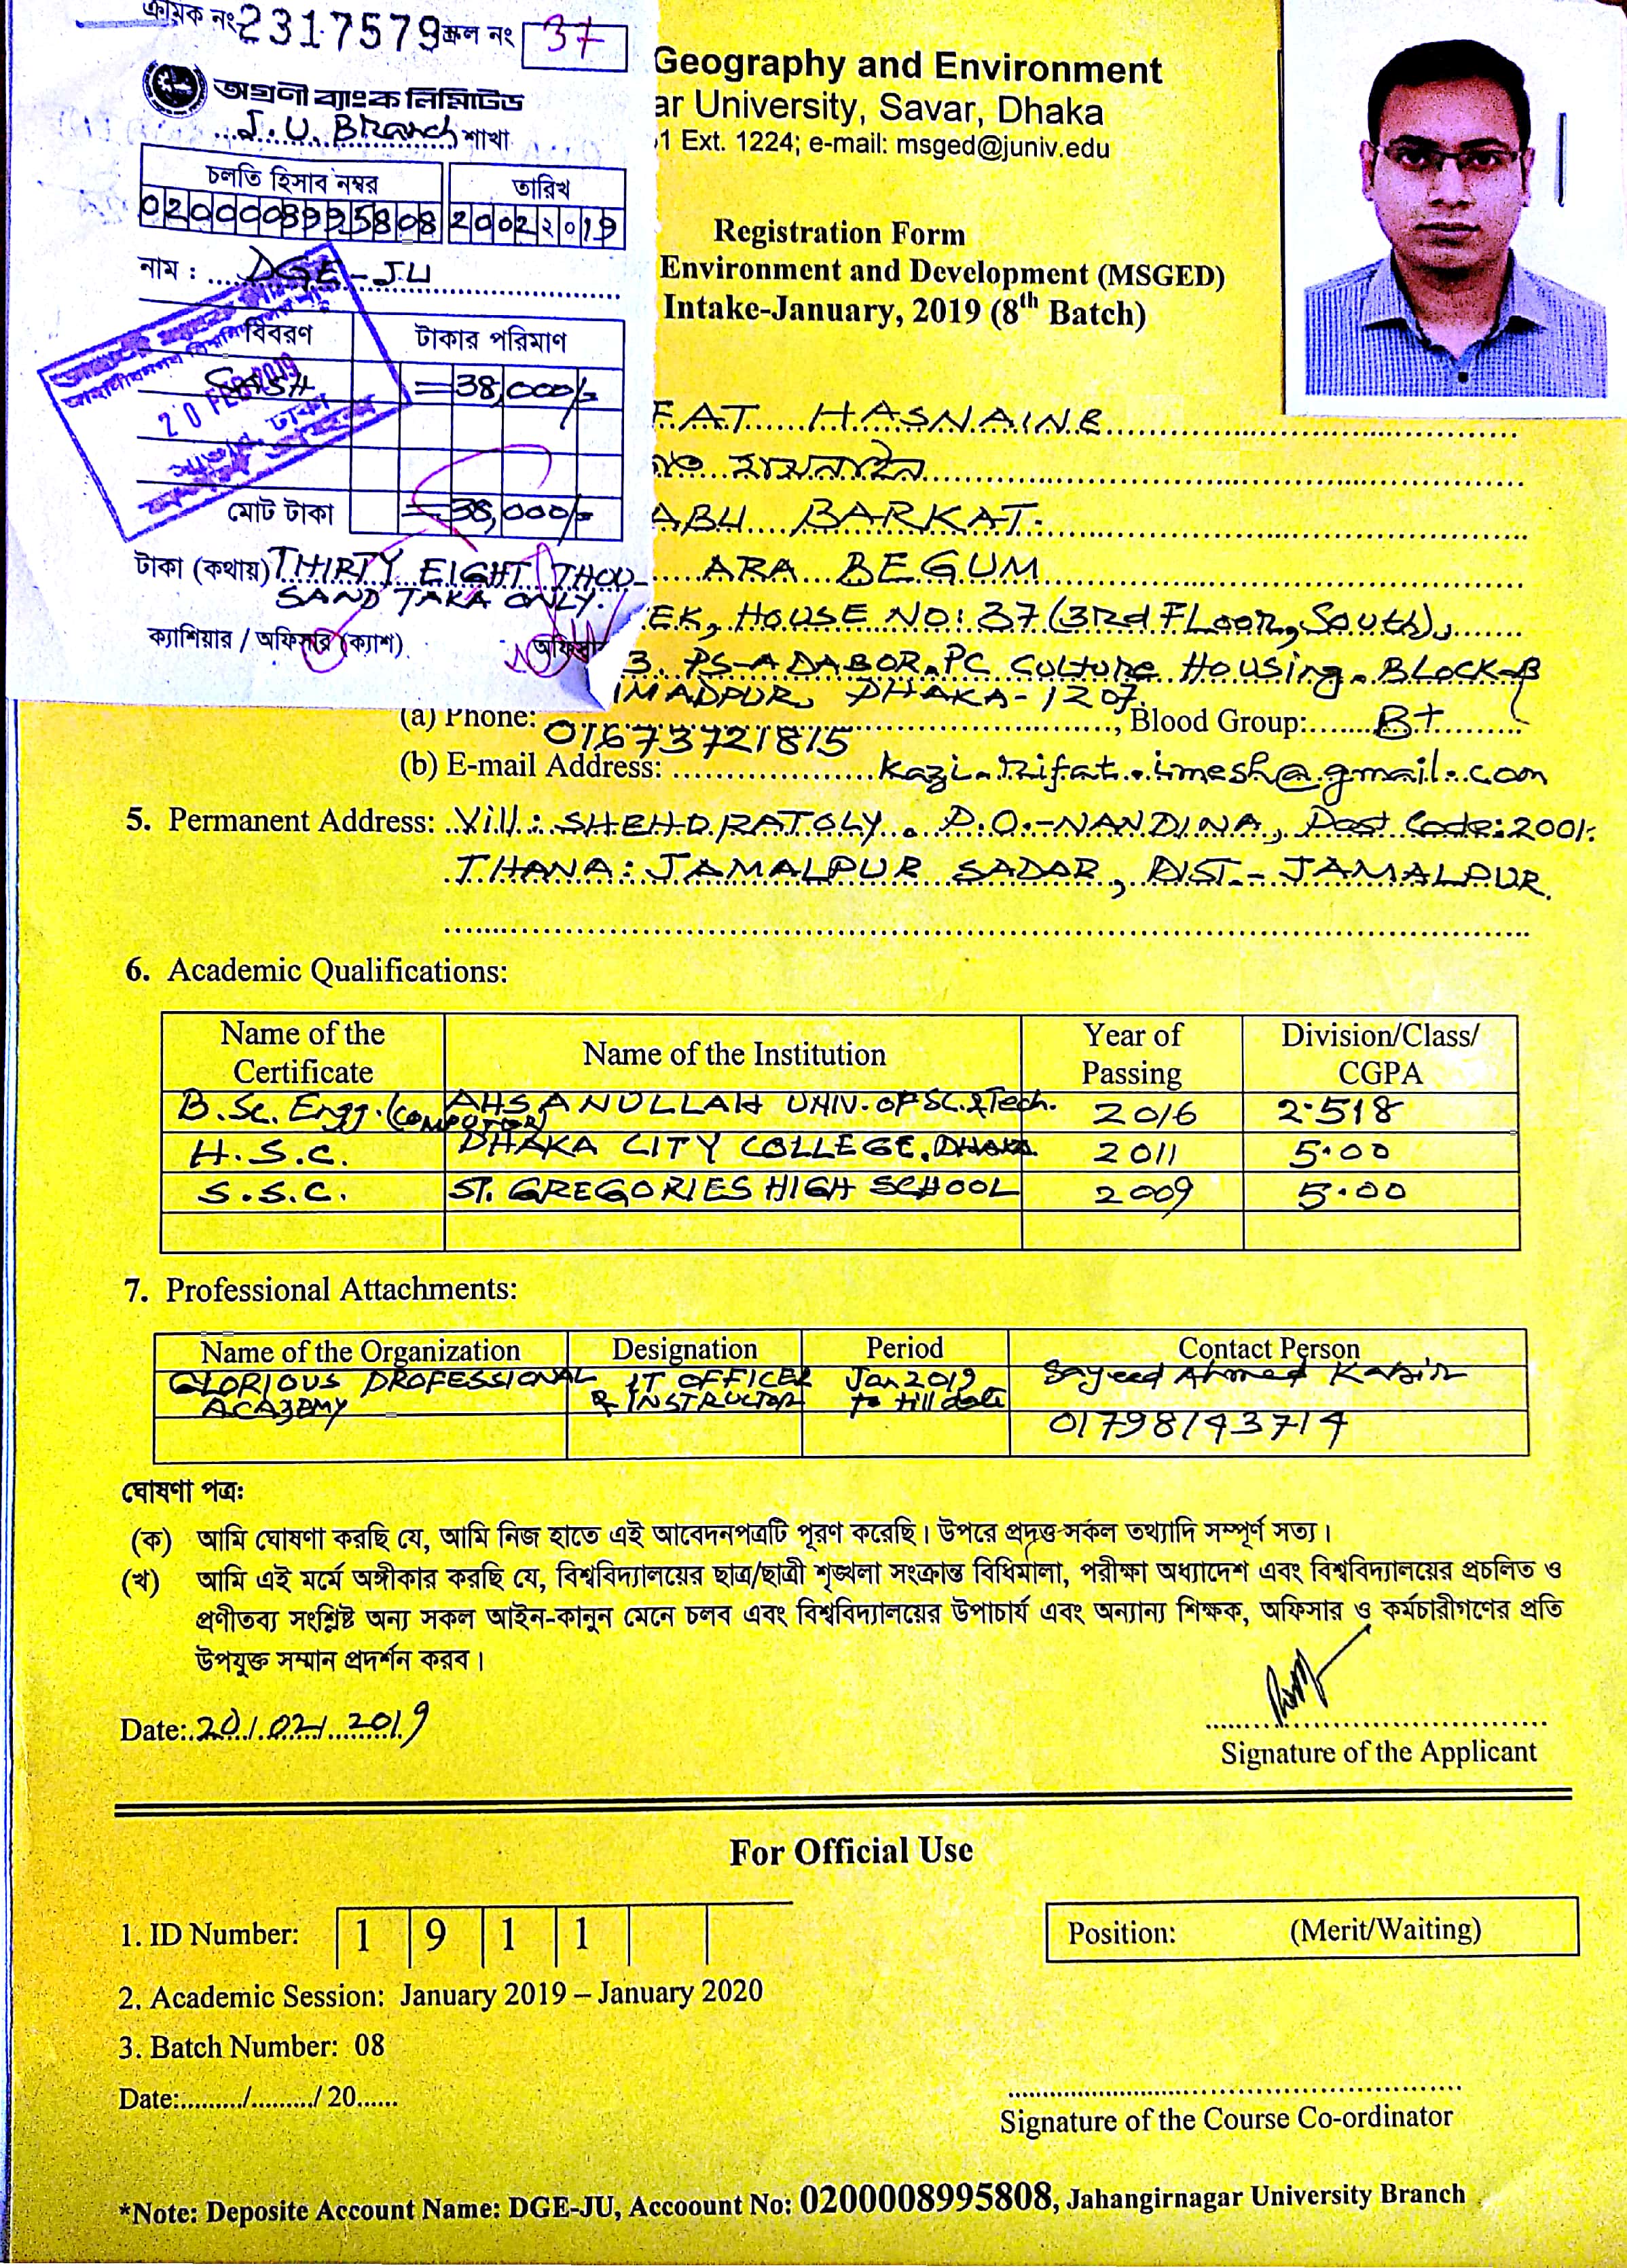 ক্রমিক নং 2317579 স্ক্রল নং 37
অগ্রণী ব্যাংক লিমিটেড
J.U. Branch শাখা
চলতি হিসাব নম্বর তারিখ
0200008995808 20022019
নাম : DGE-JU
বিবরণ টাকার পরিমাণ
CASH =38,000/=
20 FEB 2019
মোট টাকা =38,000/=
টাকা (কথায়) THIRTY EIGHT THOU-
SAND TAKA ONLY.
ক্যাশিয়ার / অফিসার (ক্যাশ)
Geography and Environment
ar University, Savar, Dhaka
1 Ext. 1224; e-mail: msged@juniv.edu
Registration Form
Environment and Development (MSGED)
Intake-January, 2019 (8th Batch)
FAT HASNAINE
হাসনাইন
ABU BARKAT.
ARA BEGUM
EK, HOUSE NO: 37 (3rd FLoor, South),
3. PS-ADABOR, PC CULTURE HOUSING. BLOCK-B
MADPUR, DHAKA-1207.
(a) Phone: 01673721815, Blood Group: B+
(b) E-mail Address: kazi.rifat.imesh@gmail.com
5. Permanent Address: Vill: SHEHDRATOLY. P.O.-NANDINA, Post Code: 2001.
THANA: JAMALPUR SADAR, DIST.- JAMALPUR.
6. Academic Qualifications:
Name of the Certificate Name of the Institution Year of Passing Division/Class/ CGPA
B.Sc. Engg. (COMPUTER) AHSANULLAH UNIV. OF SC. & Tech. 2016 2.518
H.S.C. DHAKA CITY COLLEGE, DHAKA 2011 5.00
S.S.C. ST. GREGORIES HIGH SCHOOL 2009 5.00
7. Professional Attachments:
Name of the Organization Designation Period Contact Person
GLORIOUS PROFESSIONAL IT OFFICER Jan 2019 Sayeed Ahmed Kabir
ACADEMY & INSTRUCTOR to till date
01798143714
ঘোষণা পত্রঃ
(ক) আমি ঘোষণা করছি যে, আমি নিজ হাতে এই আবেদনপত্রটি পূরণ করেছি। উপরে প্রদত্ত সকল তথ্যাদি সম্পূর্ণ সত্য।
(খ) আমি এই মর্মে অঙ্গীকার করছি যে, বিশ্ববিদ্যালয়ের ছাত্র/ছাত্রী শৃঙ্খলা সংক্রান্ত বিধিমালা, পরীক্ষা অধ্যাদেশ এবং বিশ্ববিদ্যালয়ের প্রচলিত ও
প্রণীতব্য সংশ্লিষ্ট অন্য সকল আইন-কানুন মেনে চলব এবং বিশ্ববিদ্যালয়ের উপাচার্য এবং অন্যান্য শিক্ষক, অফিসার ও কর্মচারীগণের প্রতি
উপযুক্ত সম্মান প্রদর্শন করব।
Date: 20/02/2019
Signature of the Applicant
For Official Use
1. ID Number: 1 9 1 1
Position: (Merit/Waiting)
2. Academic Session: January 2019 – January 2020
3. Batch Number: 08
Date:........./........./ 20......
Signature of the Course Co-ordinator
*Note: Deposite Account Name: DGE-JU, Accoount No: 0200008995808, Jahangirnagar University Branch